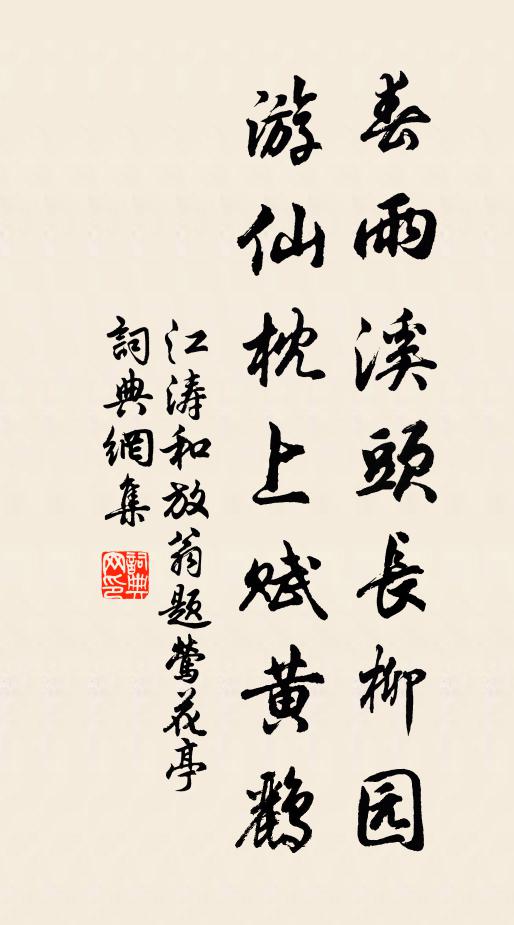 春雨溪頭長柳园
游仙枕上赋黄鸝
江涛和放翁题鶯花亭
詞典網集
詞典网印